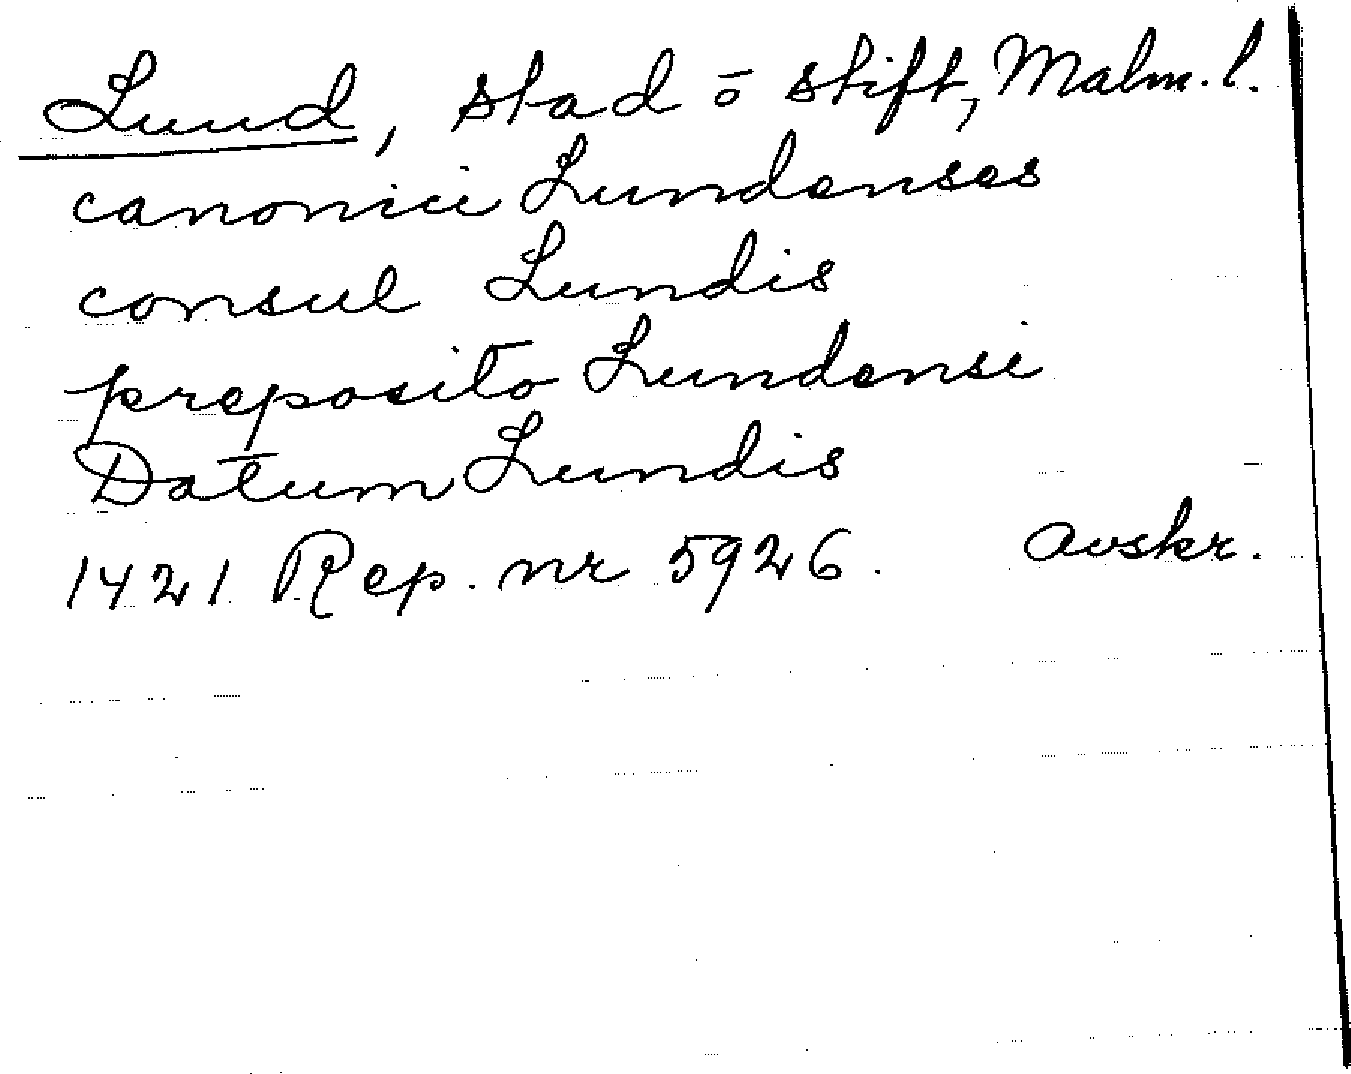 Lund, stad ō stift, Malm. l.
canonici Lundenses
consul Lundis
preposito Lundensi
Datum Lundis
1421 Rep. nr 5926. avskr.